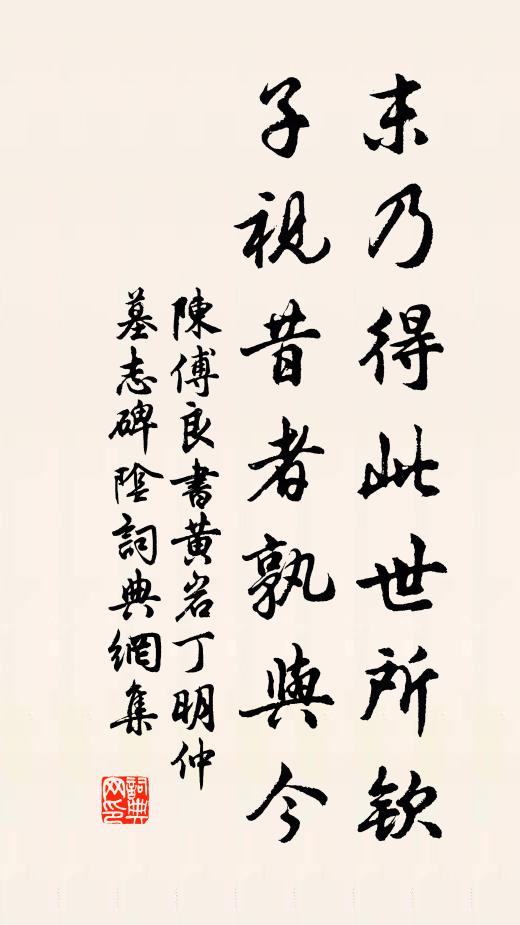 末乃得此世所欽
子視昔者孰與今
陳傅良書黄岩丁明仲
墓志碑陰詞典網集
詞典网印